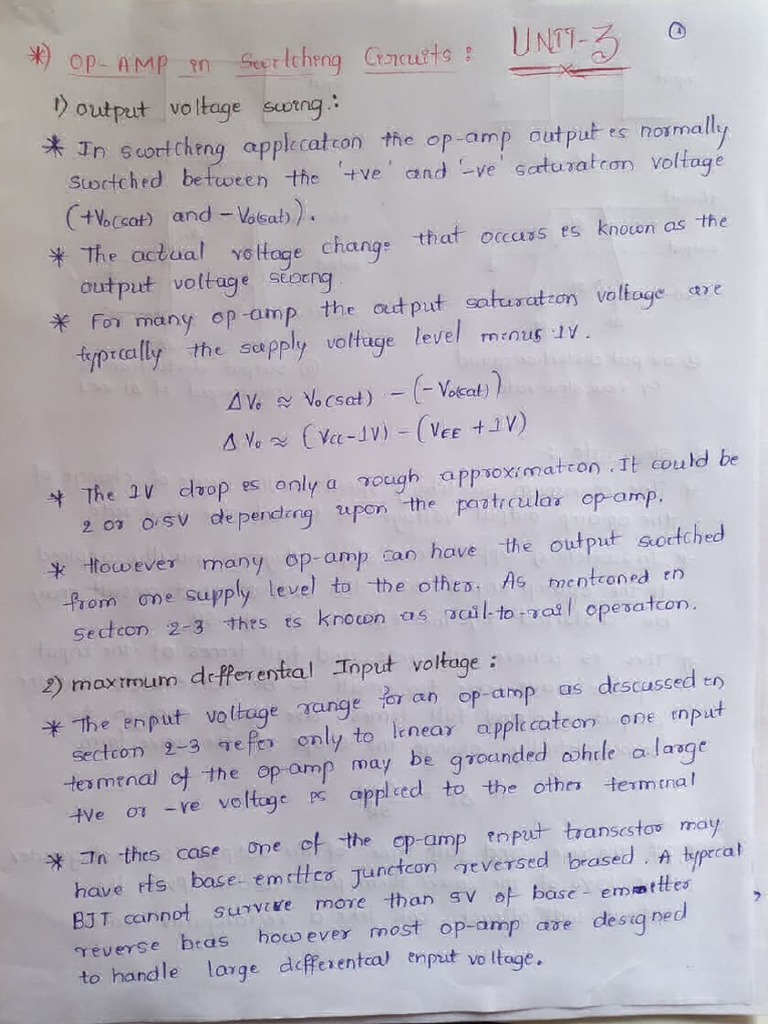 UNIT-3 ①
*) OP-AMP in Switching Circuits:
1) output voltage swing.:
* In switching application the op-amp output is normally
switched between the '+ve' and '-ve' saturation voltage
(+Vo(sat) and -Vo(sat)).
* The actual voltage change that occurs is known as the
output voltage swing.
* For many op-amp the output saturation voltage are
typically the supply voltage level minus 1V.
ΔVo ≈ Vo(sat) - (-Vo(sat))
ΔVo ≈ (Vcc-1V) - (VEE +1V)
* The 1V drop is only a rough approximation. It could be
2 or 0.5V depending upon the particular op-amp.
* However many op-amp can have the output switched
from one supply level to the other. As mentioned in
section 2-3 this is known as rail-to-rail operation.
2) maximum differential Input voltage:
* The input voltage range for an op-amp as discussed in
section 2-3 refer only to linear application one input
terminal of the op-amp may be grounded while a large
+ve or -ve voltage is applied to the other terminal
* In this case one of the op-amp input transistor may
have its base-emitter junction reversed biased. A typical
BJT cannot survive more than 5V of base-emmitter
reverse bias however most op-amp are designed
to handle large differential input voltage.